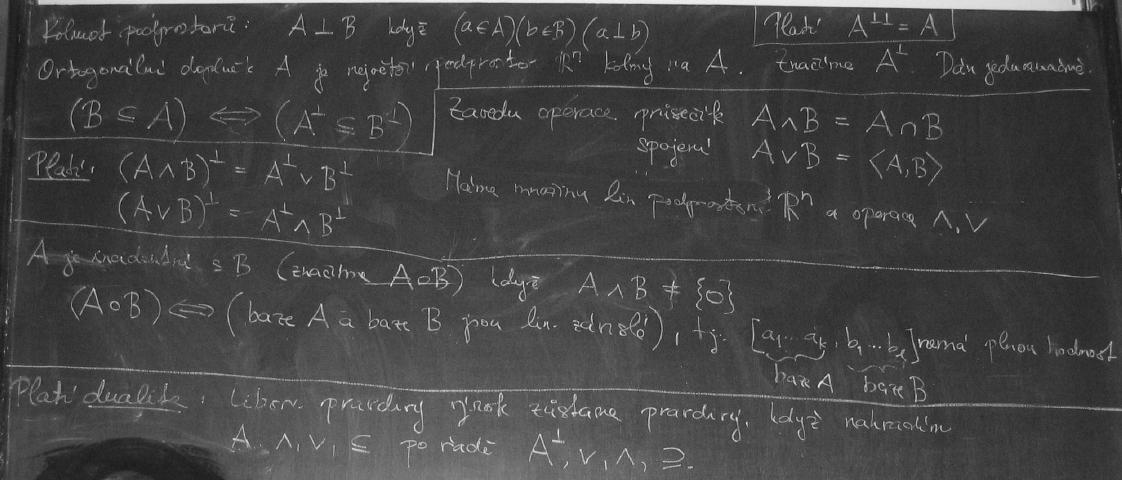 Kolmost podprostorů: A ⊥ B když (a∈A)(b∈B)(a⊥b)
Platí A⊥⊥ = A
Ortogonální doplněk A je největší podprostor ℝⁿ kolmý na A. Značíme A⊥. Dán jednoznačně.
(B ⊆ A) ⟺ (A⊥ ⊆ B⊥)
Zavedu operace průsečík A∧B = A∩B
spojení A∨B = ⟨A,B⟩
Máme množinu lin podprostorů ℝⁿ a operace ∧,∨
Platí: (A∧B)⊥ = A⊥∨B⊥
(A∨B)⊥ = A⊥∧B⊥
A je incidentní s B (značíme A∘B) když A∧B ≠ {0}
(A∘B) ⟺ (baze A a baze B jsou lin. závislé), tj. [a₁...aₖ, b₁...bₗ] nemá plnou hodnost
baze A baze B
Platí dualita: Libov. pravdivý výrok zůstane pravdivý, když nahradím
A, ∧, ∨, ⊆ po řadě A⊥, ∨, ∧, ⊇.